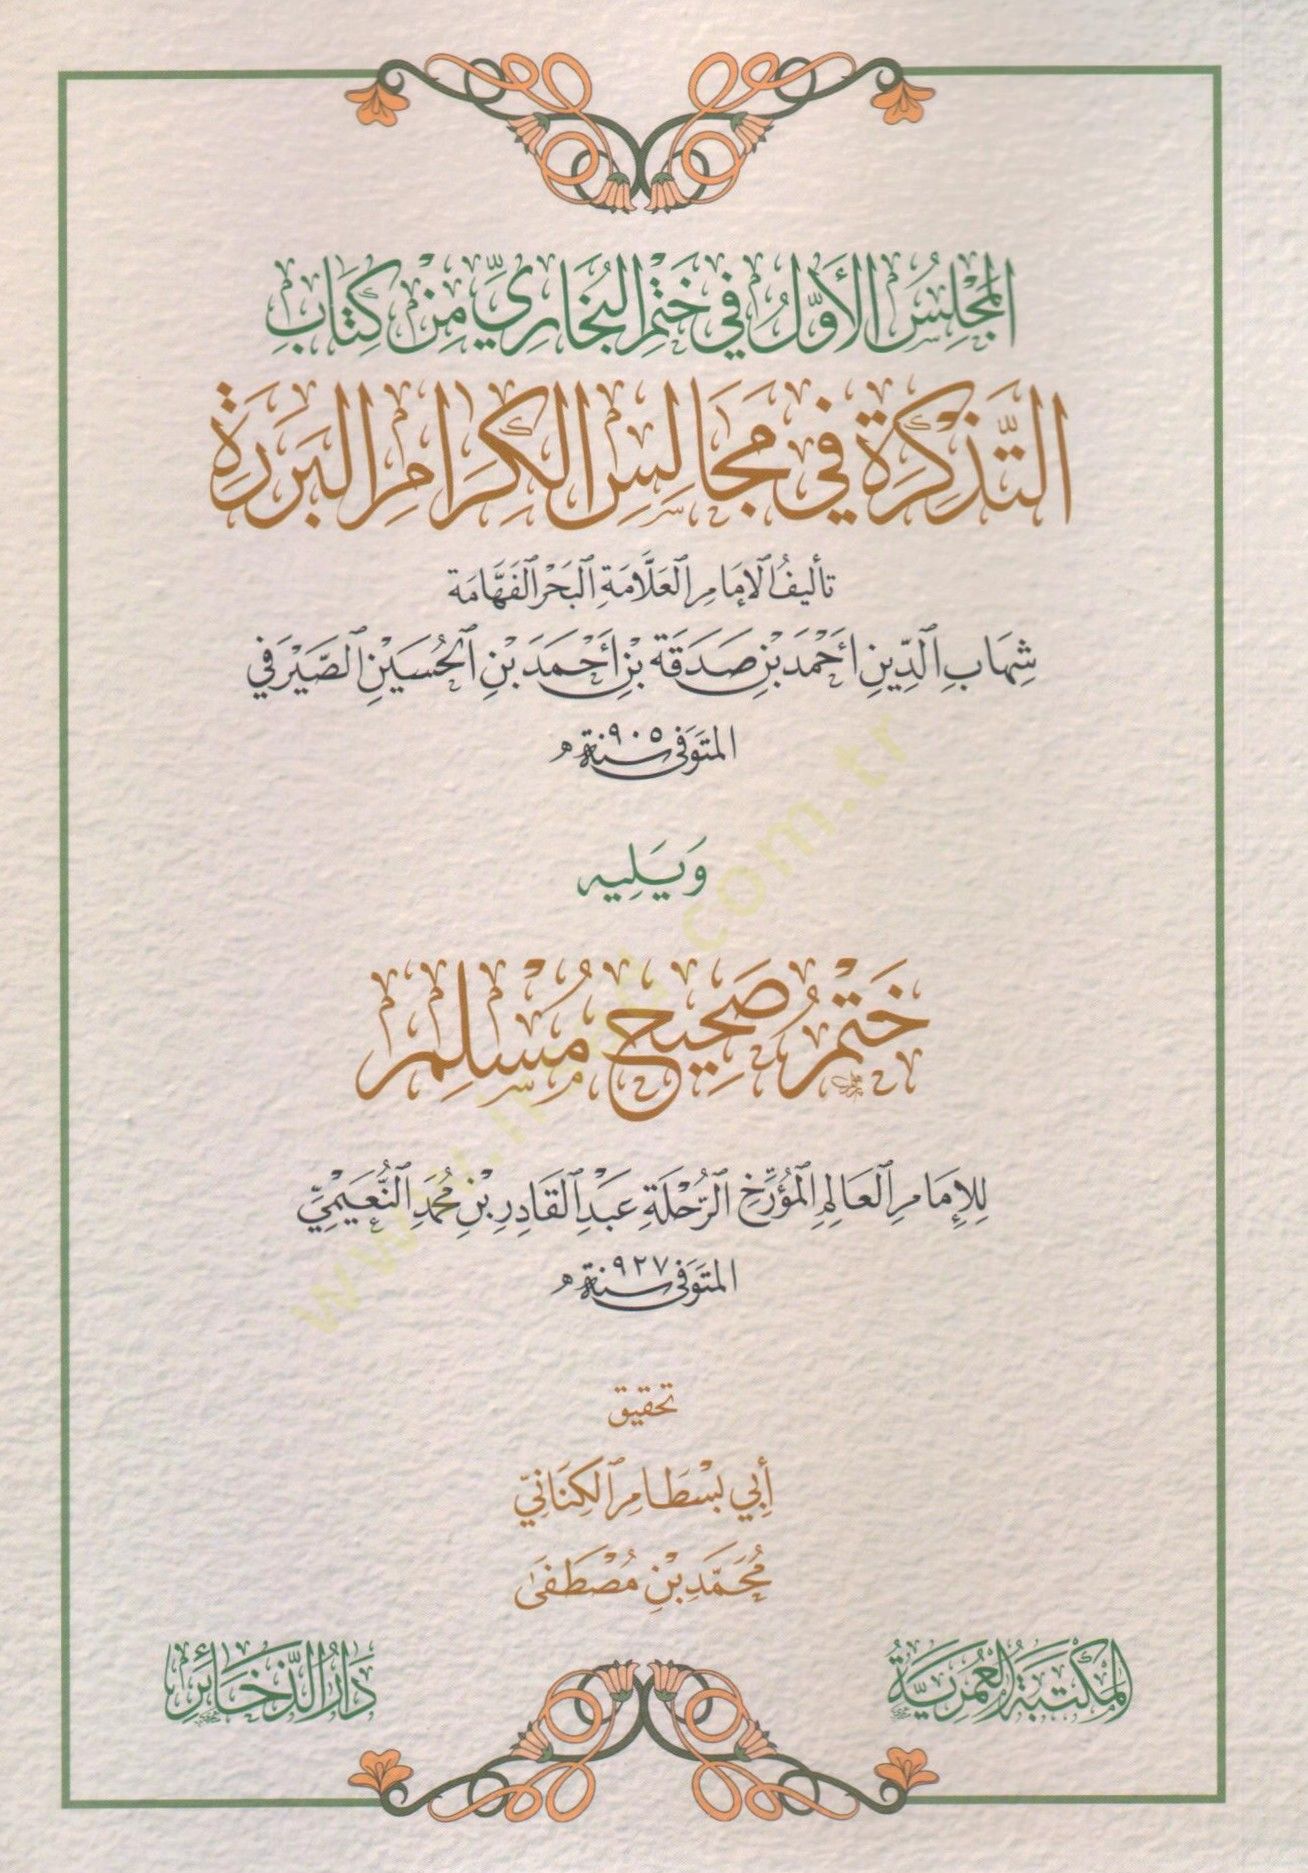 المَجْلِسُ الأَوَّلُ فِي خَتْمِ البُخَارِيِّ مِنْ كِتَابِ
التَّذْكِرَةِ فِي مَجَالِسِ الكِرَامِ البَرَرَةِ
تأليفُ الإمَامِ العَلَّامَةِ البَحْرِ الفَهَّامَة
شِهَابِ الدِّينِ أَحْمَدَ بْنِ صَدَقَة بْنِ أَحْمَدَ بْنِ الحُسَيْنِ الصَّيْرَفي
المتَوَفى سنة ٩٠٥ ه
وَيَلِيه
خَتْمُ صَحِيحِ مُسْلِم
لِلإِمَامِ العَالِمِ المُؤَرِّخِ الرُّحْلَةِ عَبْدِ القَادِرِ بْنِ مُحَمَّدِ النُّعَيْمِيِّ
المتَوَفى سنة ٩٢٧ ه
تحقيق
أَبِي بسْطَامِ الكِنَانِيّ
مُحَمَّدِ بْنِ مُصْطَفَى
المَكتَبَةُ العُمَرِيَّةُ
دَارُ الذَّخَائِرِ